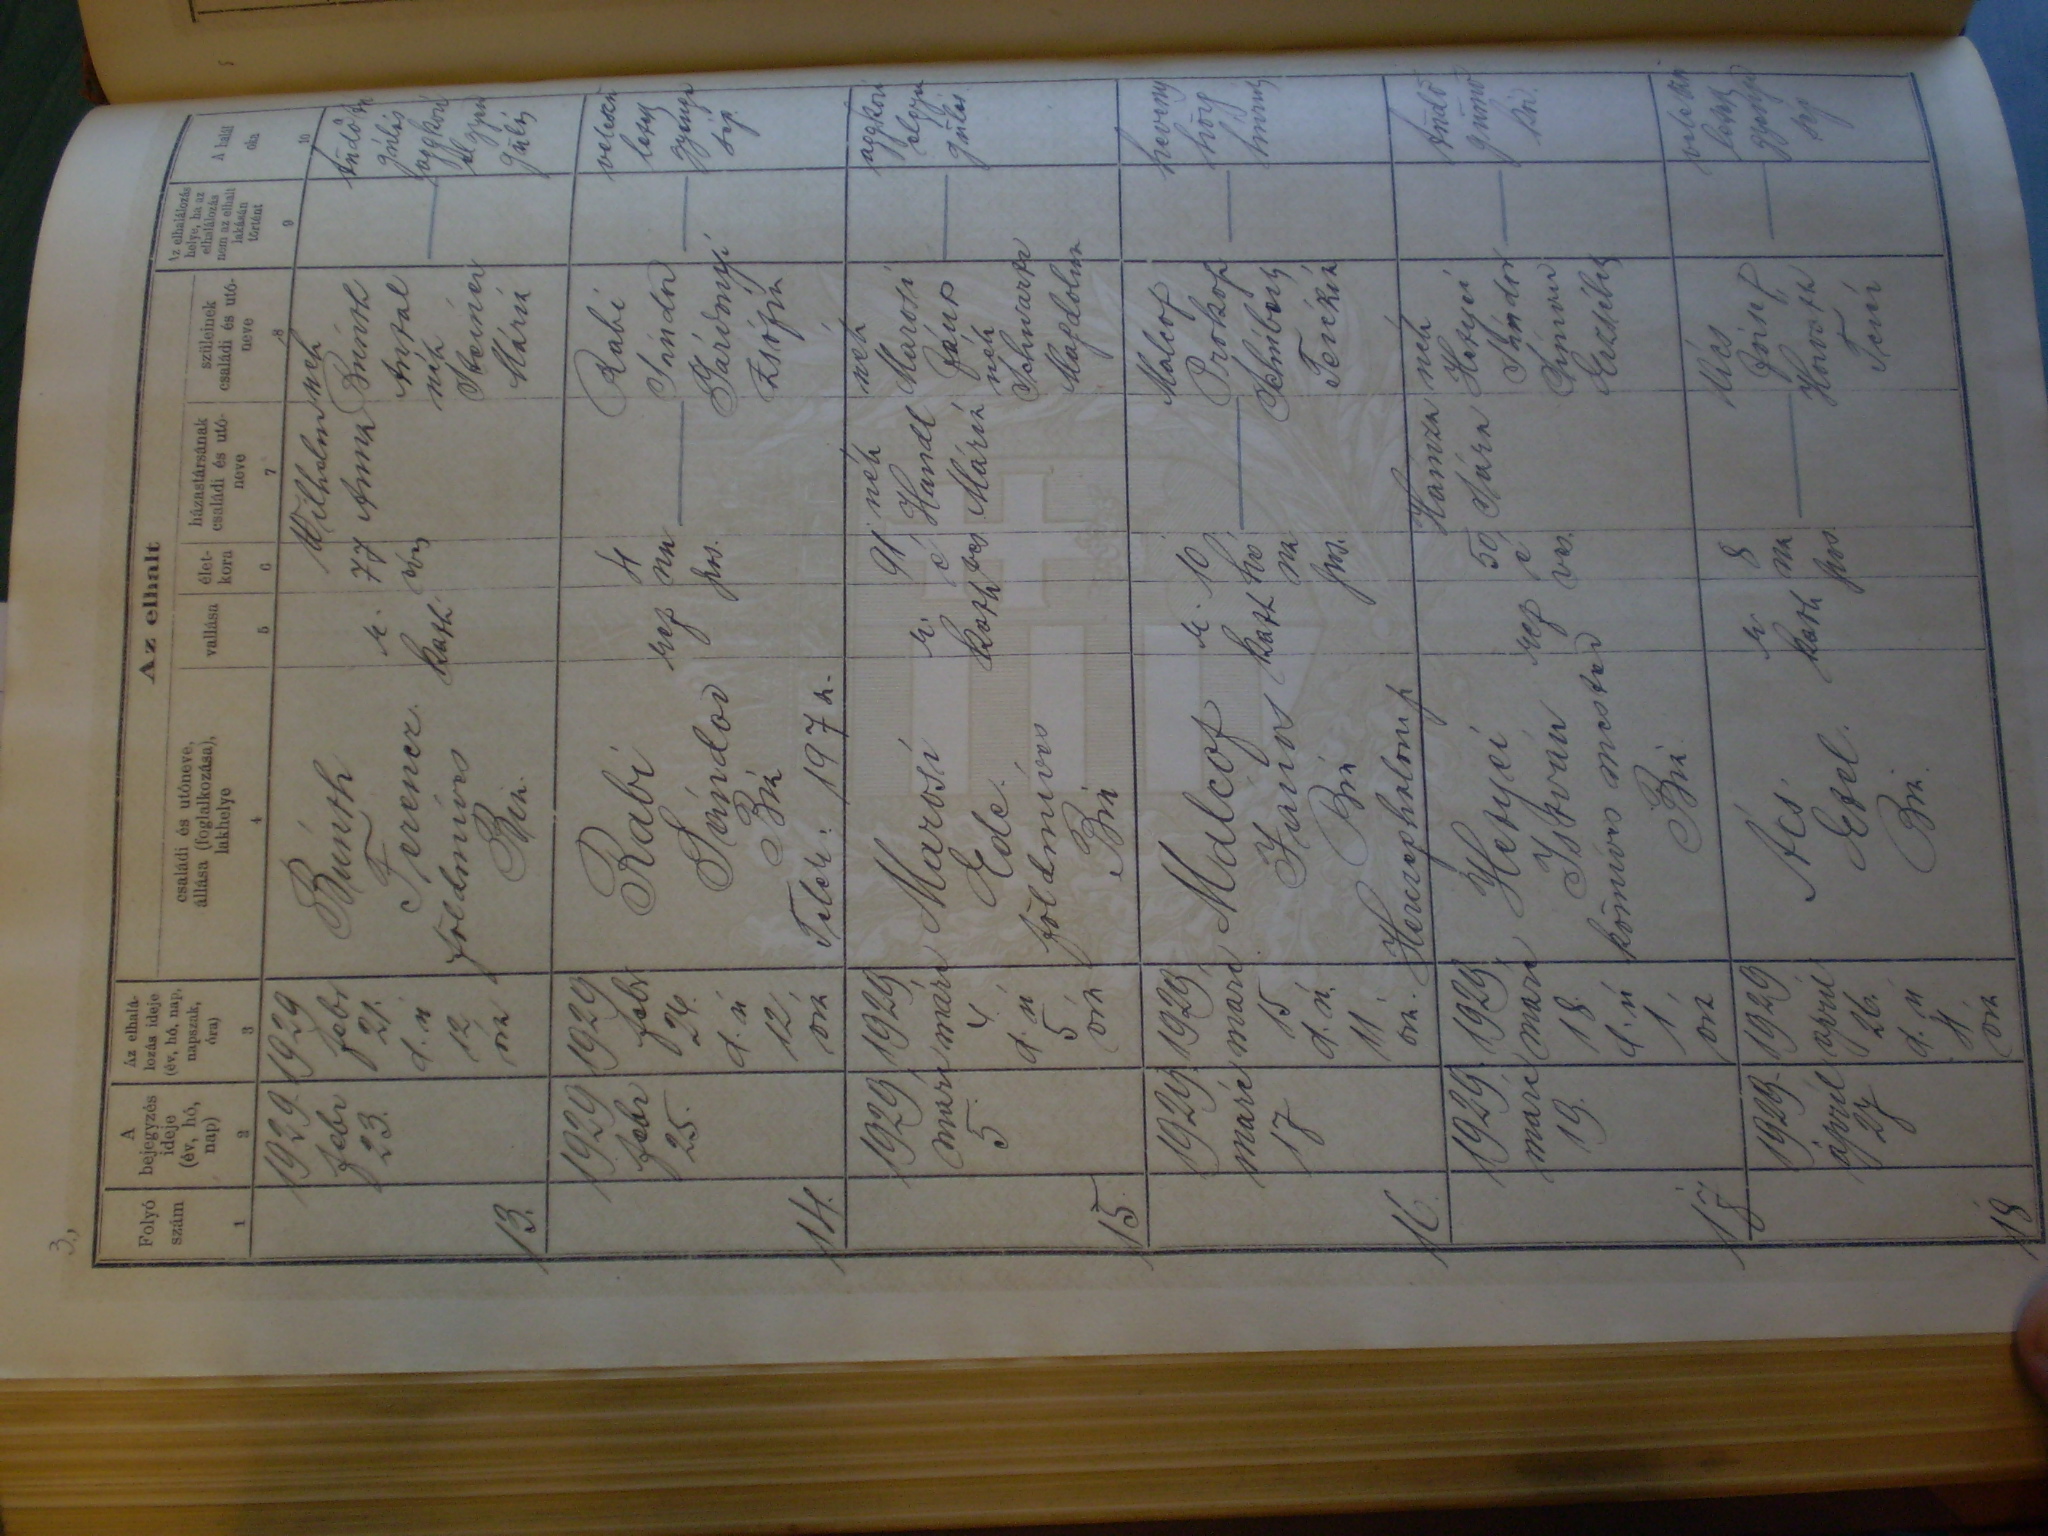 3,
Az elhalt
Folyó
szám
A
bejegyzés
ideje
(év, hó,
nap)
Az elhalá-
lozás ideje
(év, hó, nap,
napszak,
óra)
családi és utóneve,
állása (foglalkozása),
lakhelye
vallása
élet-
kora
házastársának
családi és utó-
neve
szüleinek
családi és utó-
neve
Az elhalálozás
helye, ha az
elhalálozás
nem az elhalt
lakásán
történt
A halál
oka
1
2
3
4
5
6
7
8
9
10
13.
1929
febr
23.
1929
febr
21.
d. u
12
óra
Bánth
Ferencz
földmíves
Bia
r.
kath.
77
éves
Wilhelm
Anna
néh
Antal
néh
Mária
aggkori
elgyen
gülés
14.
1929
febr
25.
1929
febr
24.
d. u
12
óra
Rabi
Sándor
Bia
ref
4
na
pos.
Rabi
Sándor
Zsófia
gyenge
ség
15.
1929
márc
5
1929
márc
4.
d. u
5
óra
Marosi
Ede
földmíves
Bia
r.
kath
91
é
ves
néh
Handl
Mária
néh
Marosi
János
néh
Schwartz
Magdolna
aggkori
elgyen
gülés.
16.
1929.
marc
17
1929
marc
15
d. u.
11
óra.
Malcof
János
Bia
Herczeghalom p
r.
kath
10
hó
na
pos.
Malcof
Prokop
Teréka
heveny
hörg
hurut
17
1929.
marc
19.
1929
marc
18.
d. u
1
óra
Hetyei
István
kőmíves mester
Bia.
ref
50
é
ves.
Hamza
Sára
néh
Hetyei
Sándor
Erzsébet
tüdő
gümő
kór.
18
1929.
április
27
1929
április
26.
d. u
4
óra
Ács
Etel.
Bia.
r.
kath
8
na
pos
Ács
József
Horváth
Teréz
gyenge
ség